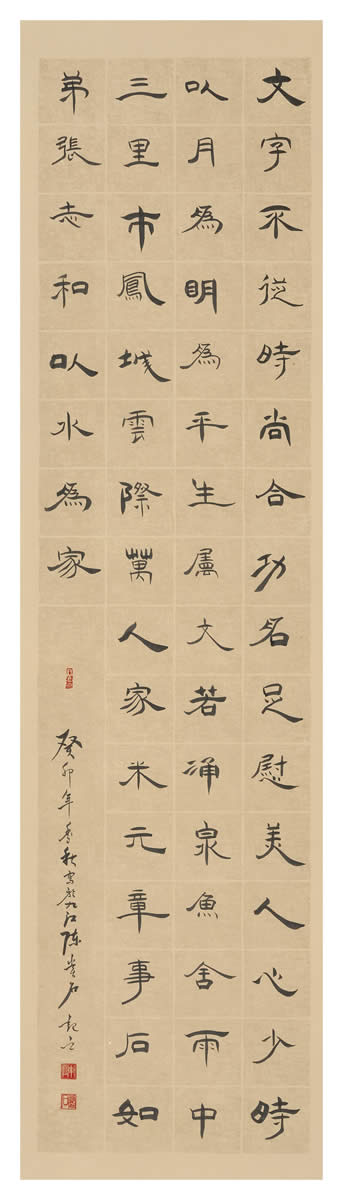 文字不從時尚合功名足慰美人心少時
以月為明為平生屬文若涌泉魚舍雨中
三里市鳳城雲際萬人家米元章事石如
弟張志和以水為家
癸卯年秋於九江陈贵石